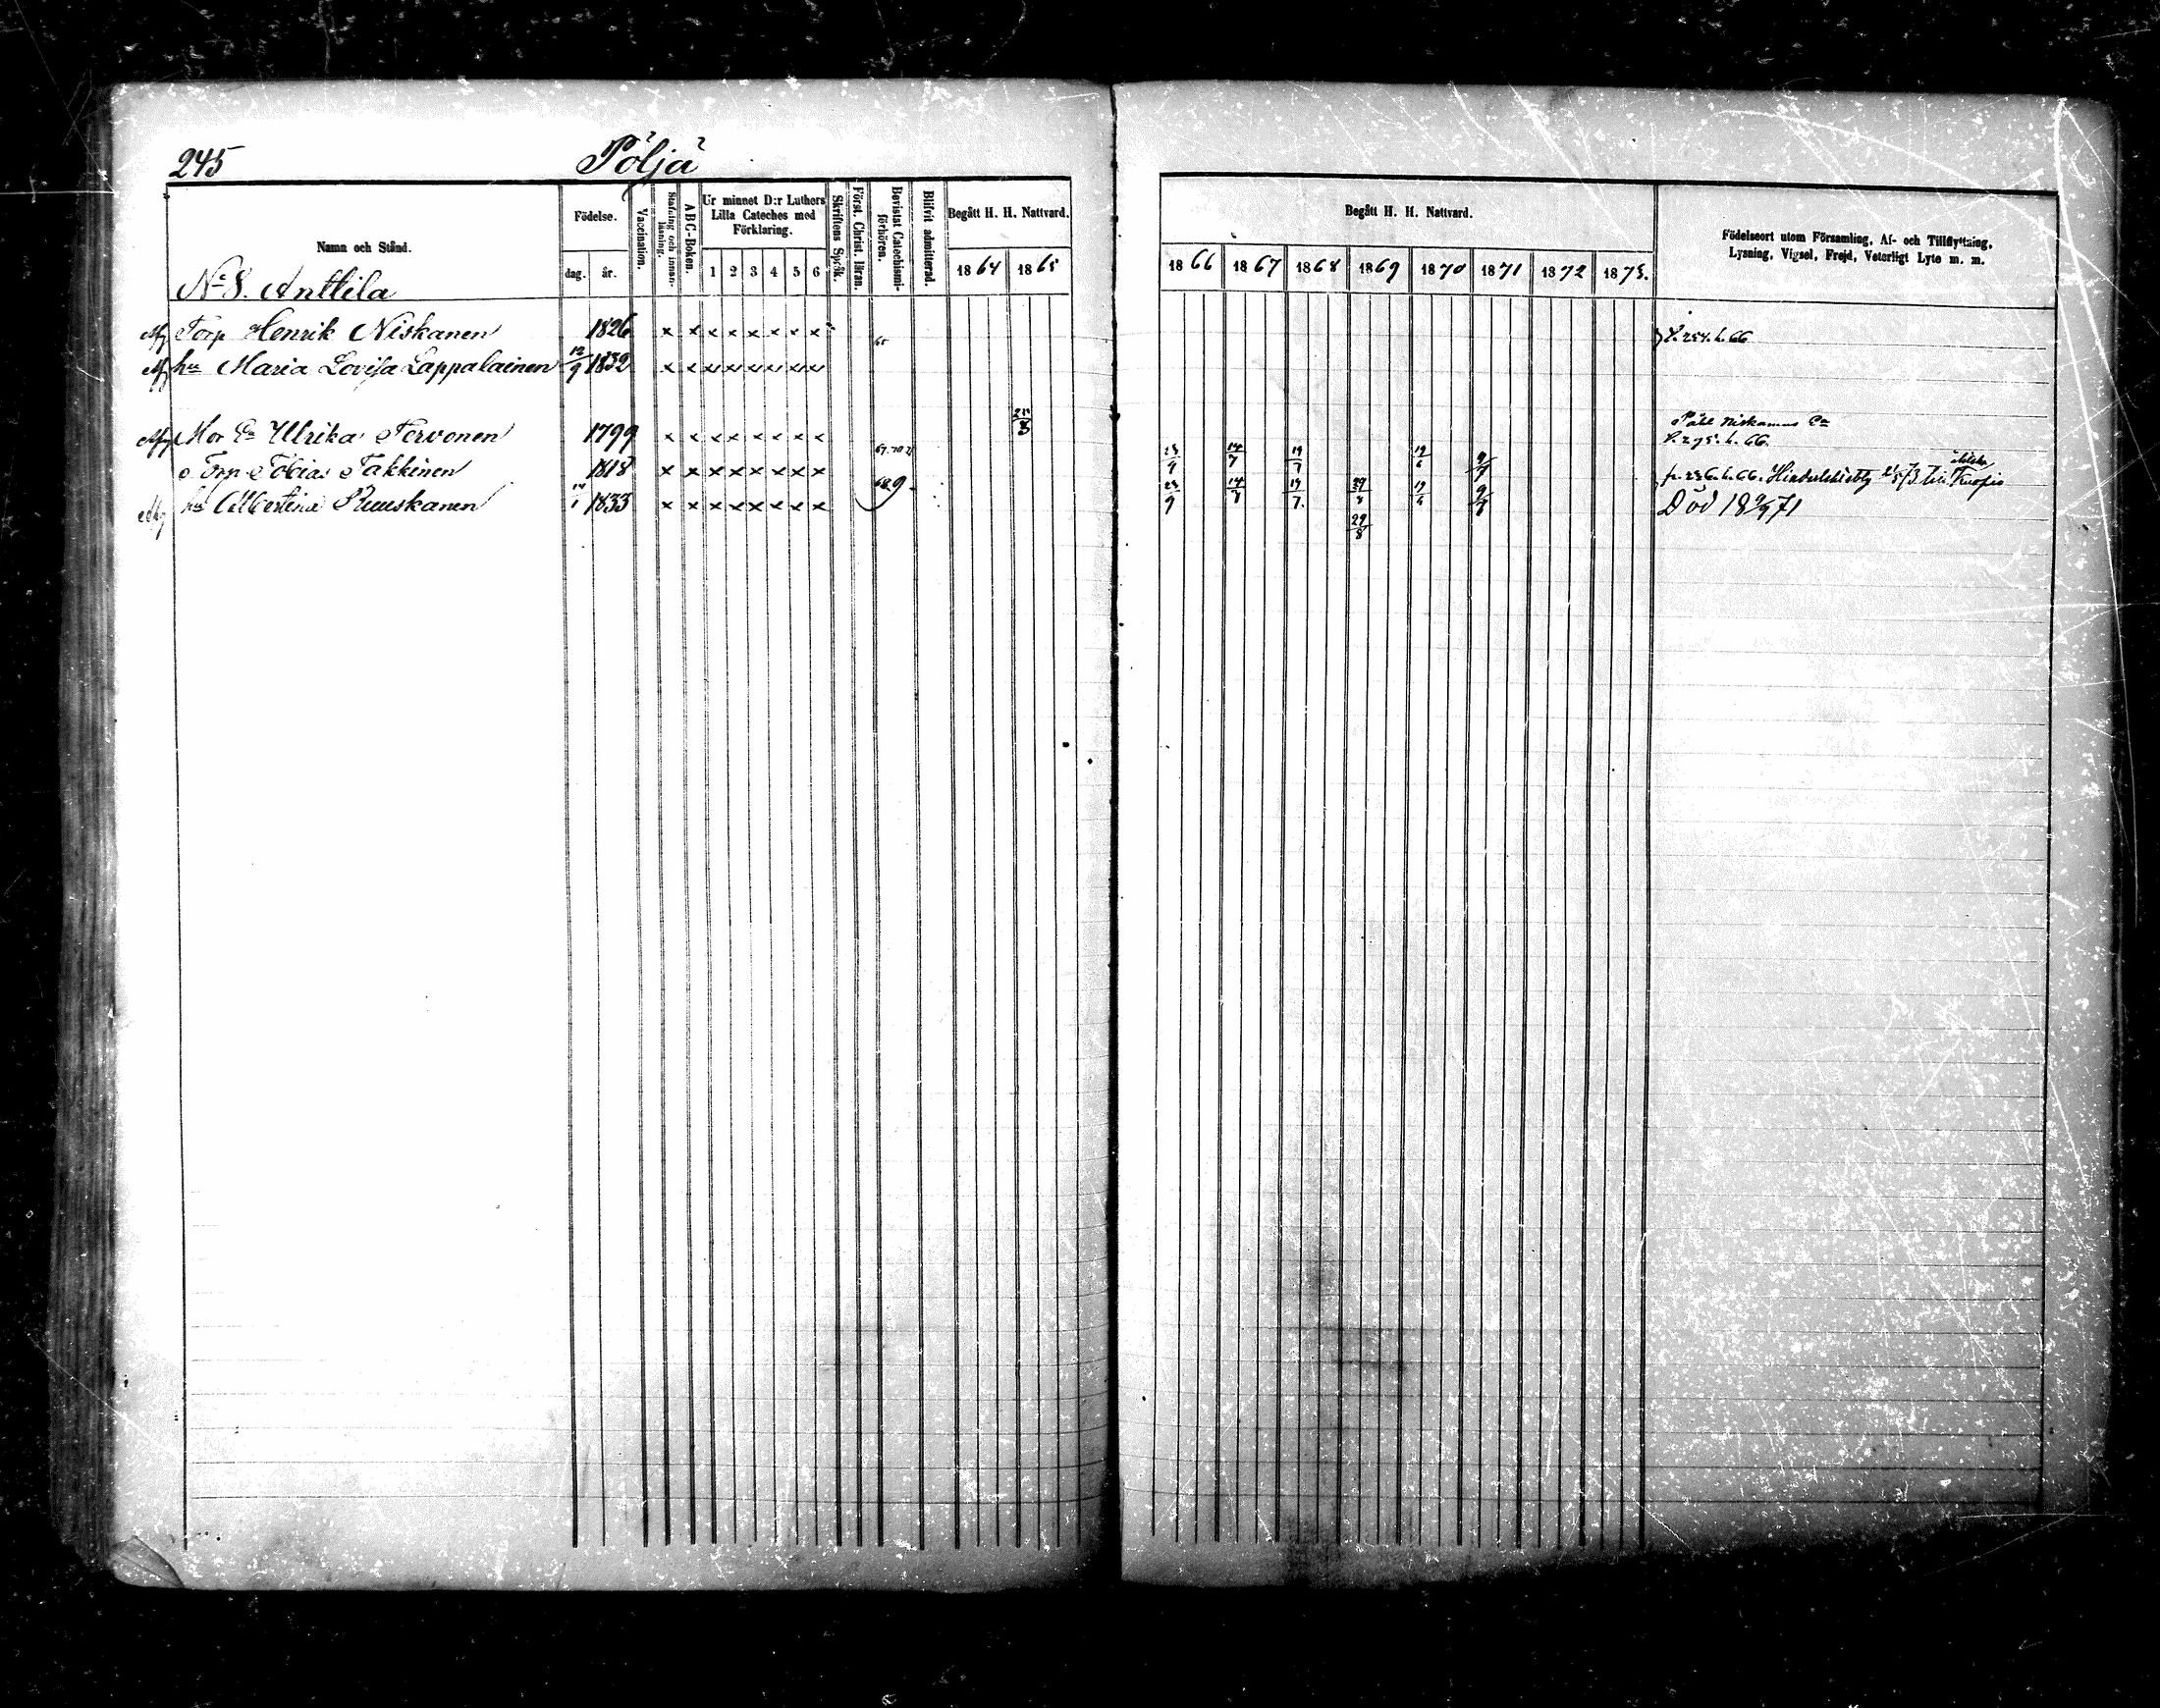 245 Pöljä
Namn och Stånd. Födelse. dag. år. Vaccination. Stafning och innanläsning. A B C-Boken. Ur minnet D:r Luthers Lilla Cateches med Förklaring. 1 2 3 4 5 6 Skriftens Språk. Först. Christ. läran. Bevistat Catechismiförhören. Blifvit admitterad. Begått H. H. Nattvard. 1864 1865
Begått H. H. Nattvard. 1866 1867 1868 1869 1870 1871 1872 1873.
Födelseort utom Församling, Af- och Tillflyttning, Lysning, Vigsel, Frejd, Veterligt Lyte m. m.
No 8. Anttila
Torp Henrik Niskanen 1826 x x x x x x x x 65 P. 254. h. 66
hu Maria Lovisa Lappalainen 12/9 1832 x x x x x x x x
25/8 Påhl Niskanens Ea
Mor Ea Ulrika Tervonen 1799 x x x x x x x x P. 275. h. 66.
Torp Tobias Takkinen 1818 x x x x x x x x 67. 70 71 23/9 14/7 19/7 19/6 9/7 p. 256. h. 66. Kuopio
hu Albertina Ruuskanen 14/1 1833 x x x x x x x x 68.9. 23/9 14/7 19/7. 29/8 19/6 9/7 Död 18 2/9 71
29/8